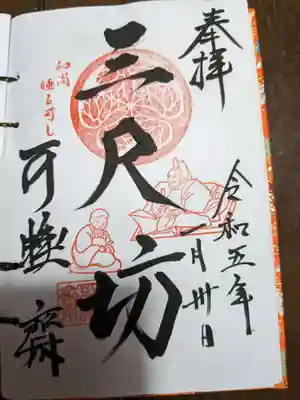 奉拝
令和五年
一月卅日
三尺坊
和尚
睡る可し
可睡齋